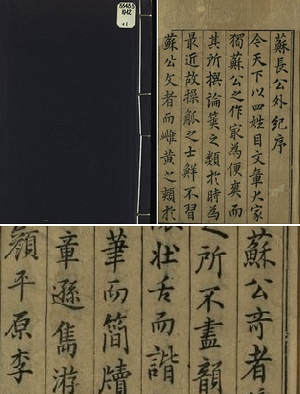 蘇長公外紀序
今天下以四姓目文章大家
獨蘇公之作冣為便爽而
其所撰論筴之類於時為
最近故操觚之士鮮不習
蘇公文者而雌黃之類於
蘇公竒者
之所不盡韻
壯舌而諧
筆而簡牘
章遜雋游
顏平原李